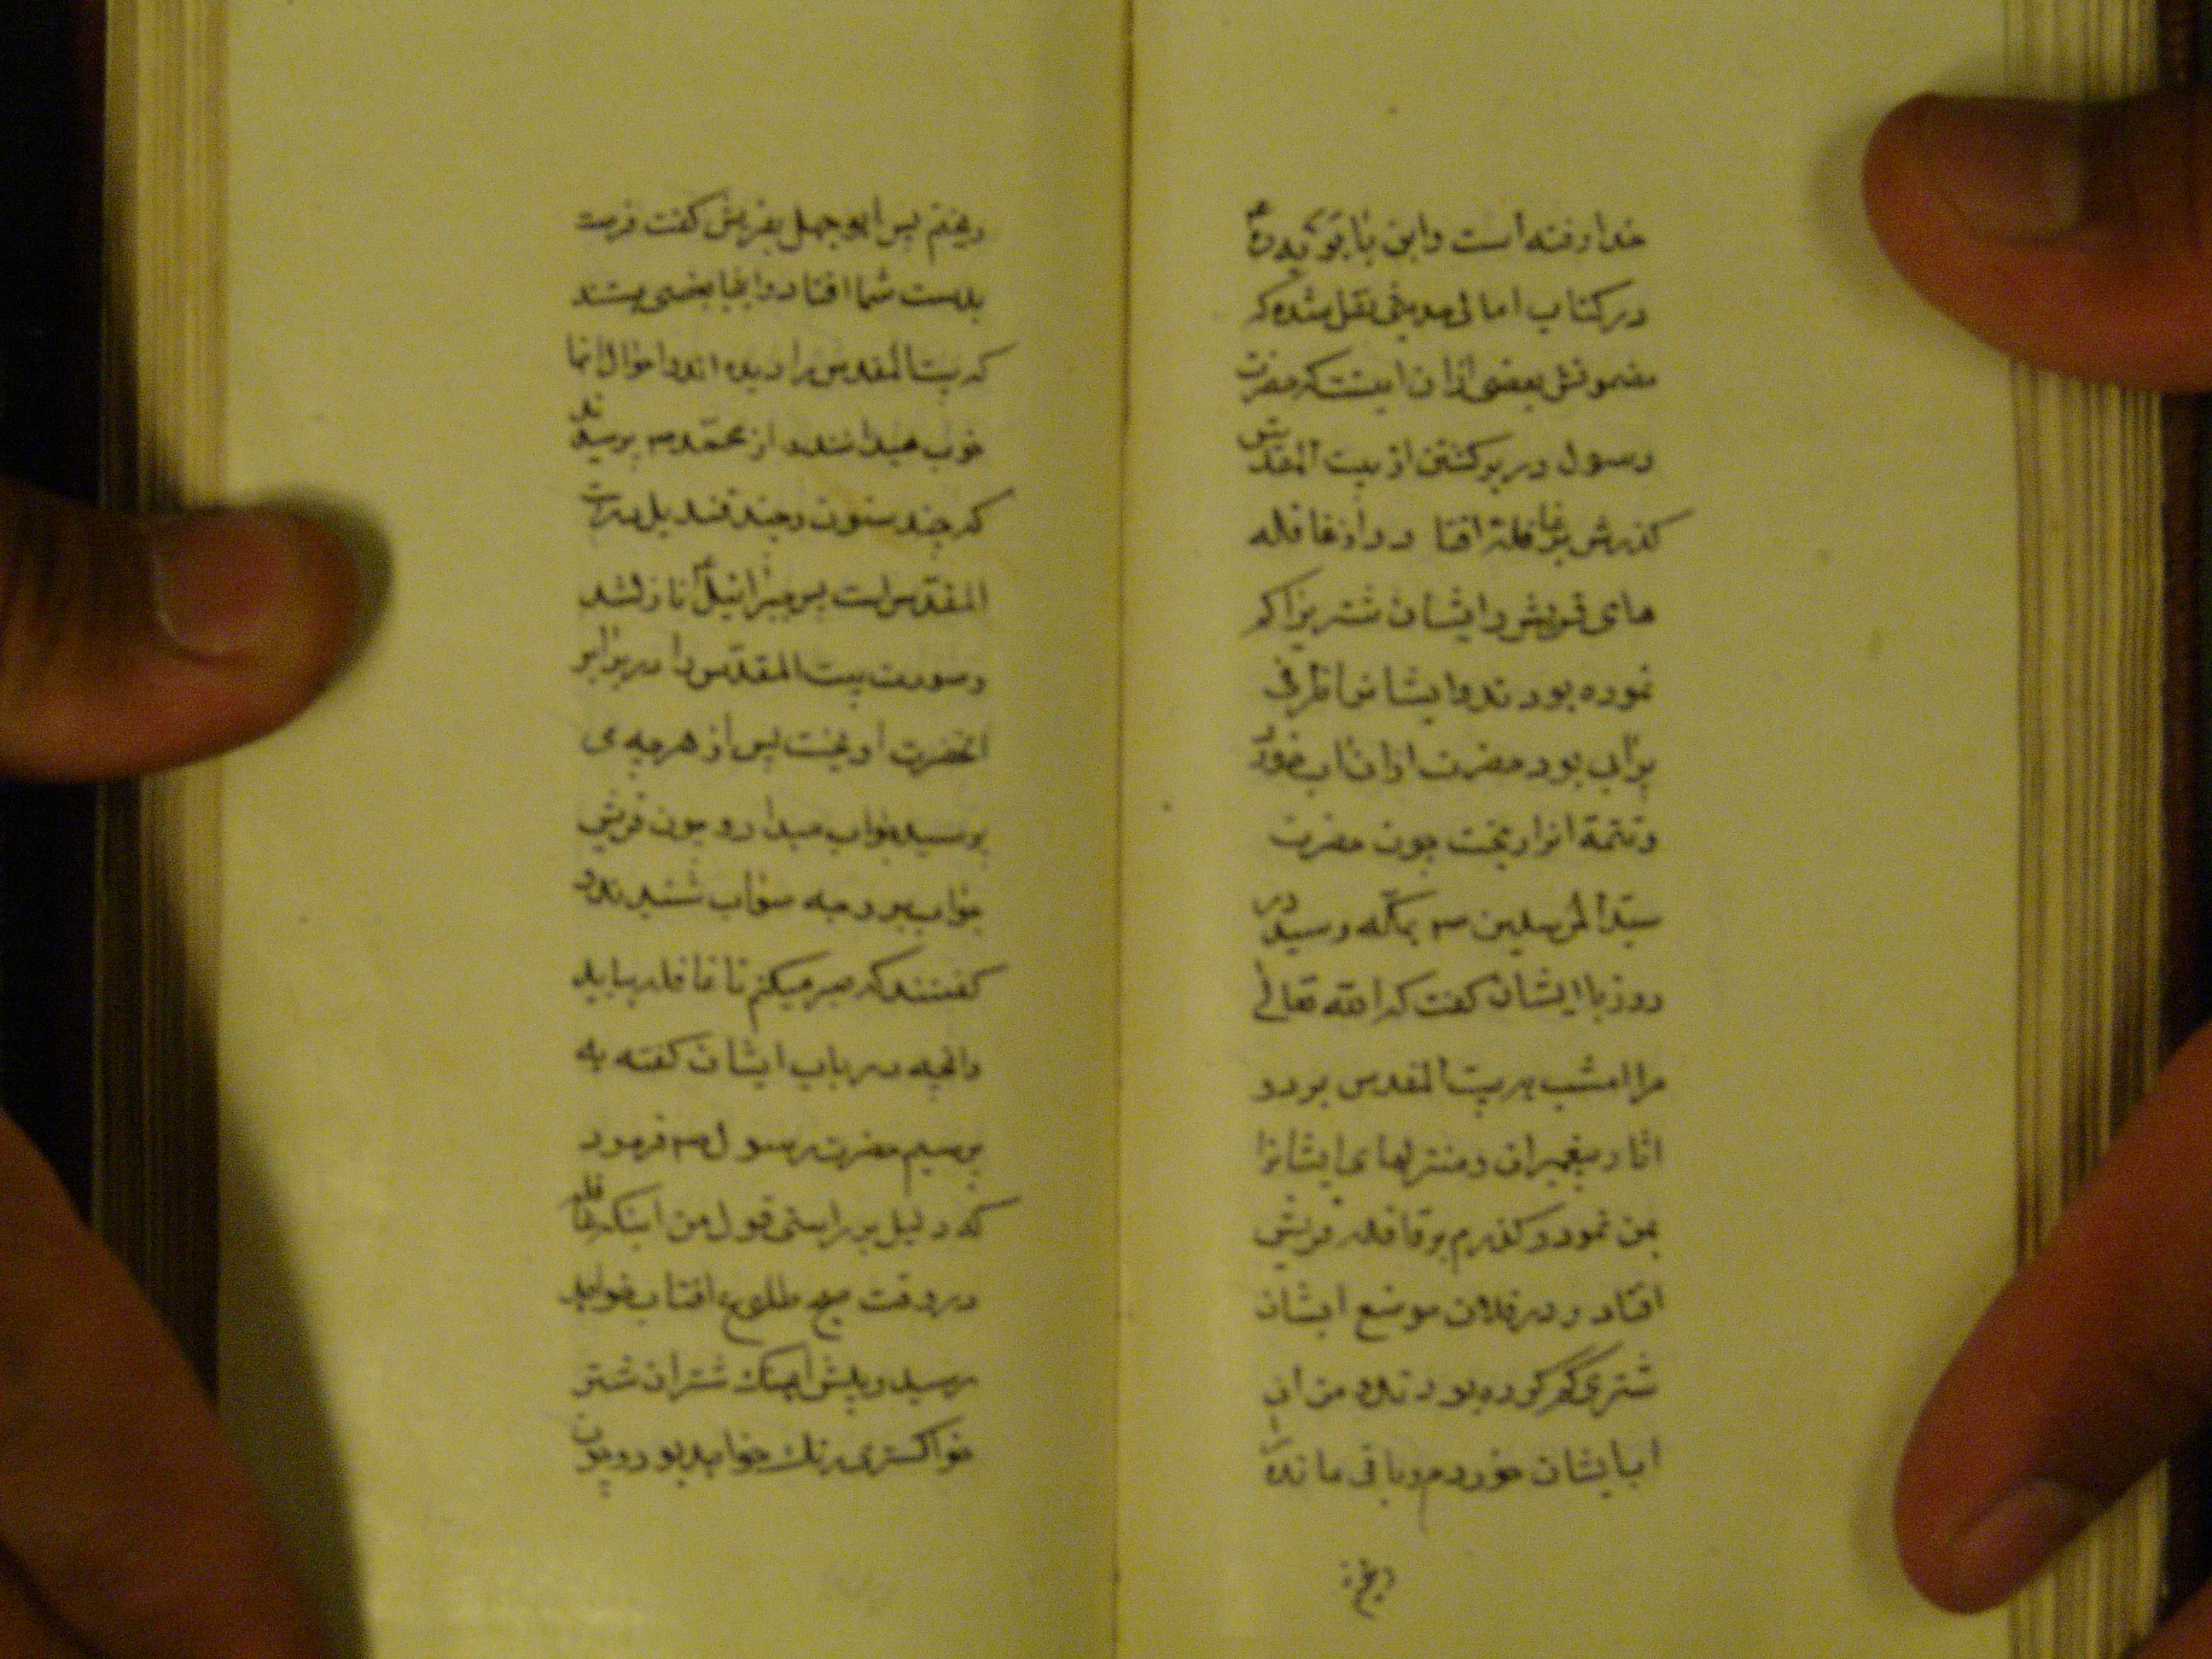 خدا رفته است و این با بقو پدرۀ
در کتاب امالی حدیثی نقل شده که
مضمونش بعضی از ان اینستکه حضرت
رسول در برکشتن از بیت المقدس
کذرش بر قافلۀ افتاد و از قافله
های قریش و ایشان شتریرا کم
نموده بودند و ایشانرا ظرفی
براب بود حضرت از ان اب خورد
و تتمۀ انرا ریخت چون حضرت
سیّد المرسلین ص بمکّه رسید در
روز با ایشان کفت که الله تعالی
مرا امشب به بیت المقدس برد و
اثار پیغمبران و منزلهای ایشانرا
بمن نمود و کذرم بر قافله قریش
افتاد و در فلان موضع ایشان
شتری کم کرده بودند و من از
اب ایشان خوردم و باقی مانده را
ریختم
ریختم پس ابو جهل بقریش کفت فرصت
بدست شما افتاد و اینجا بعضی هستند
که بیت المقدس را دیده اند و احوال انجا
خوب میدانند و از محمّد ص پرسیدند
که چند ستون و چند قندیل در بیت
المقدّس است پس جبرائیل ع نازلشد
و صورت بیت المقدّس را در برابر
انحضرت اویخت پس از هر چه می
پرسید جواب میداد و چون قریش
جواب بر وجه صواب شنیدند و
کفتند که صبر میکنم تا قافله بیاید
وانچه در باب ایشان کفته به
پرسیم حضرت رسول ص فرمود
که دلیل بر راستی قول من اینکه قافله
در وقت صبح طلوع افتاب خواهد
رسید و پیش اهنک شتران شتر
خواکستری رنک خواهد بود و چون